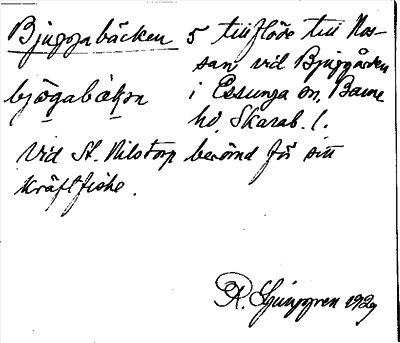 Bjuggabäcken 5 tillflöde till Nos-
san vid Bjuggården
bjögabäkən i Essunga sn, Barne
hd, Skarab. l.
Vid St. Nilstorp berömd för sitt
kräftfiske.
R. Ljunggren 1929